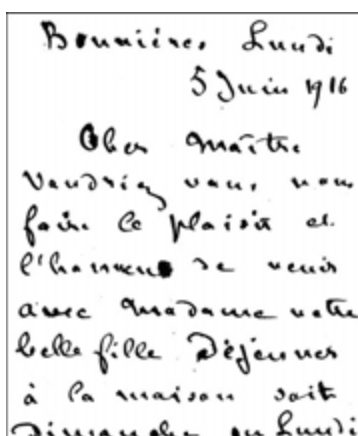 Bonnières Lundi
5 Juin 1916
Cher Maître
Voudriez vous, nous
faire le plaisir et
l'honneur de venir
avec Madame votre
belle fille Déjeuner
à la maison soit
Dimanche ou Lundi